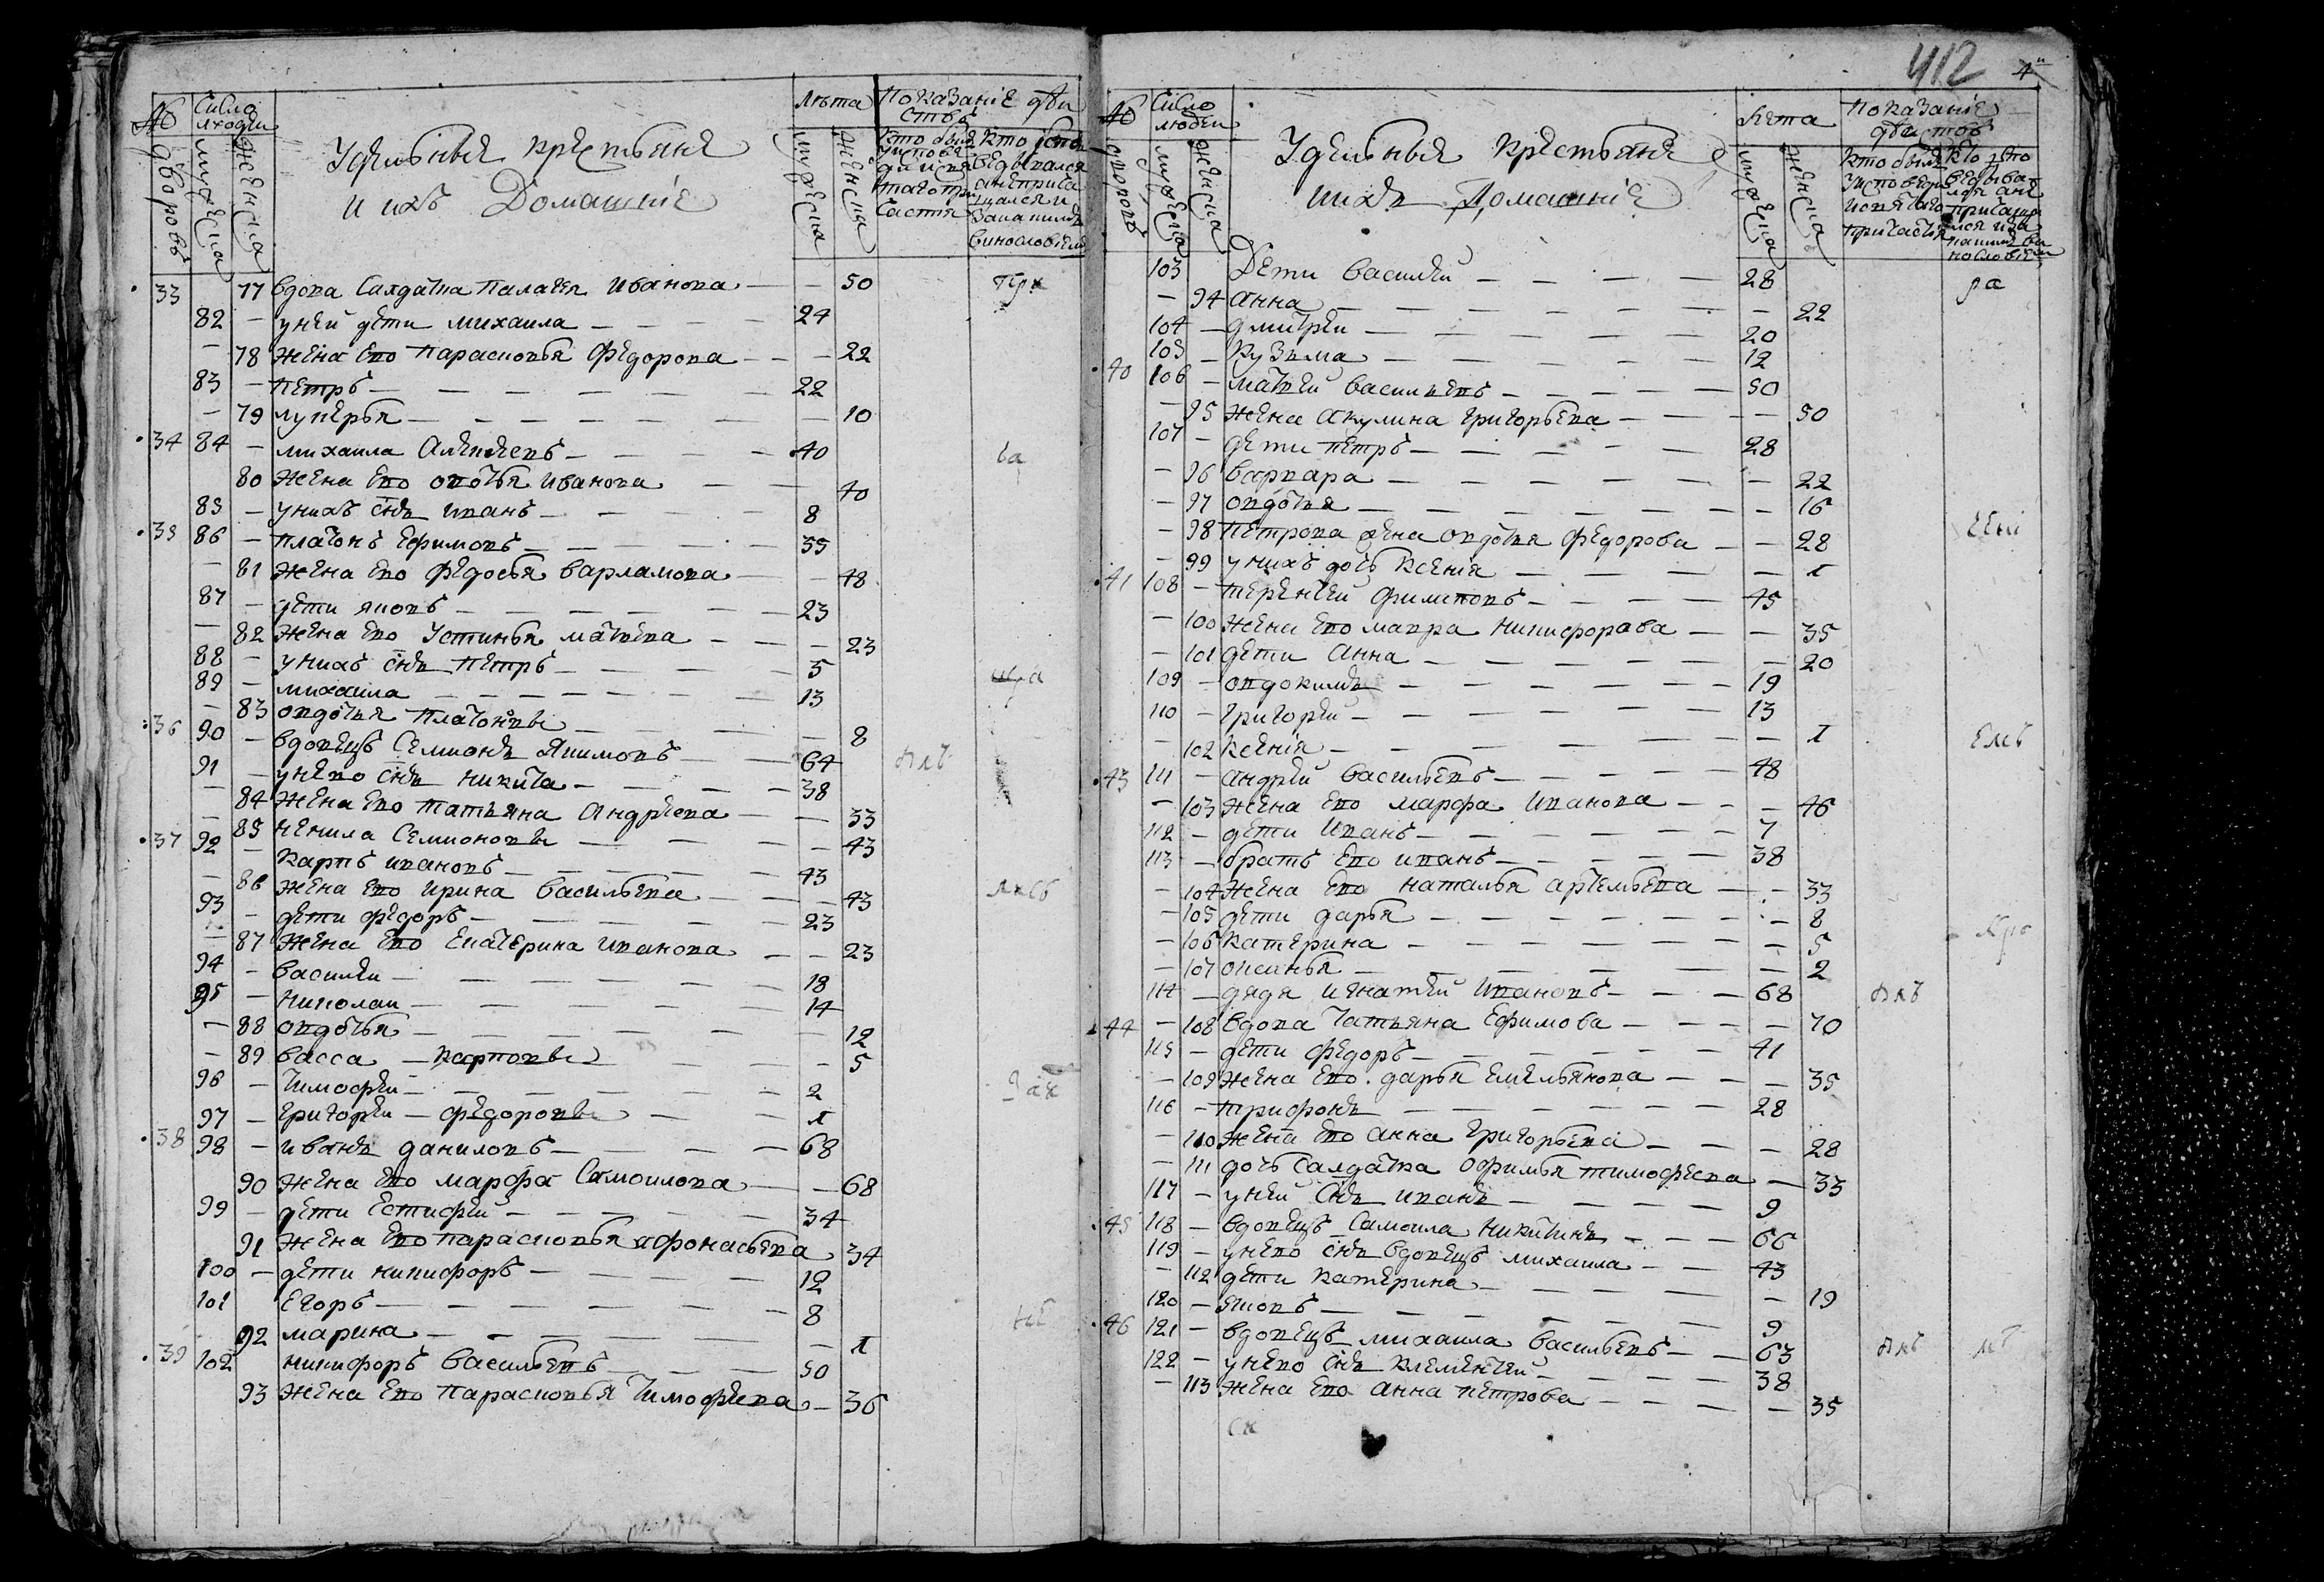 412 4
№ дворовъ
Число людей
мужеска
женска
Удельныя крестьяне
и ихъ Домашние
Лѣта
мужеска
женска
Показание действъ
33 77 вдова Салдатка Палагея Иванова — — 50
82 — у ней дети михаила — — — — 24
— 78 жена ево парасковья Федорова — — — 22
83 — петръ — — — — — — 22
— 79 лукерья — — — — — — — 10
34 84 — михаила Алексеевъ — — — — 40
80 жена ево овдотья иванова — — 40
85 — у нихъ снъ иванъ — — — — — 8
35 86 — платонъ Ефимовъ — — — — — 55
— 81 жена ево федосья варламова — — 48
87 — дети яковъ — — — — — — 23
— 82 жена ево Устинья матвева — — — 23
88 — у нихъ снъ петръ — — — — — 5
89 — михаила — — — — — — — 13
— 83 овдотья платоновы — — — — — 8
36 90 — вдовецъ Семионъ Якимовъ — — 64
91 — у нево снъ никита — — — — 38
— 84 жена ево татьяна Андреева — — 33
— 85 ненила Семионовы — — — — 43
37 92 — карпъ ивановъ — — — — — 43
— 86 жена ево ирина васильева — — — 43
93 — дети федоръ — — — — — — 23
— 87 жена ево Екатерина иванова — — 23
94 — василеи — — — — — — — 18
95 — николаи — — — — — — — 14
— 88 овдотья — — — — — — — 12
— 89 васса — карповы — — — — — 5
96 — тимофеи — — — — — — — 2
97 — григореи — федоровы — — — 1
38 98 — иванъ даниловъ — — — — — 68
90 жена ево марфа Самоилова — — 68
99 — дети Естифей — — — — — — 34
91 жена ево парасковья афонасьева 34
100 — дети никифоръ — — — — — 12
101 Егоръ — — — — — — — 8
92 марина — — — — — — — 1
39 102 никифоръ васильевъ — — — 50
93 жена ево парасковья тимофеева — 36
№ дворовъ
Число людей
мужеска
женска
Удельныя крестьяне
и ихъ Домашние
Лета
мужеска
женска
Показание действъ
103 Дети василей — — — — 28
— 94 анна — — — — — — — 22
104 — дмитрей — — — — — — 20
105 — кузьма — — — — — — 12
40 106 — матвей васильевъ — — — — 50
— 95 жена акулина григорьева — — — 50
107 — дети петръ — — — — — 28
— 96 варвара — — — — — — — 22
— 97 овдотья — — — — — — — 16
— 98 петрова жена овдотья федорова — — 28
— 99 у нихъ дочь ксения — — — — 1
41 108 — терентей филиповъ — — — — 45
— 100 жена ево мавра никифорава — — 35
— 101 дети анна — — — — — — 20
109 — овдокимъ — — — — — — 19
110 — григорей — — — — — — 13
— 102 ксения — — — — — — — 1
43 111 — андрей васильевъ — — — — 48
— 103 жена ево марфа иванова — — — 46
112 — дети иванъ — — — — — — 7
113 — братъ ево иванъ — — — — — 38
— 104 жена ево наталья артемьева — — 33
— 105 дети дарья — — — — — — 8
— 106 катерина — — — — — — 5
— 107 оксинья — — — — — — 2
114 — дядя игнатей ивановъ — — — 68
44 — 108 вдова татьяна Ефимова — — — 70
115 — дети федоръ — — — — — — 41
— 109 жена ево дарья Емельянова — — — 35
116 — трифонъ — — — — — — — 28
— 110 жена ево анна григорьева — — — 28
— 111 дочь салдатка офимья тимофеева — 33
117 — у ней снъ иванъ — — — — 9
45 118 — вдовецъ Самоила никитинъ — — — 66
119 — у нево снъ вдовецъ михаила — — 43
— 112 дети катерина — — — — — 19
120 — яковъ — — — — — — — 9
46 121 — вдовецъ михаила васильевъ — — 63
122 — у нево снъ клементей — — — — 38
— 113 жена ево анна петрова — — — — 35